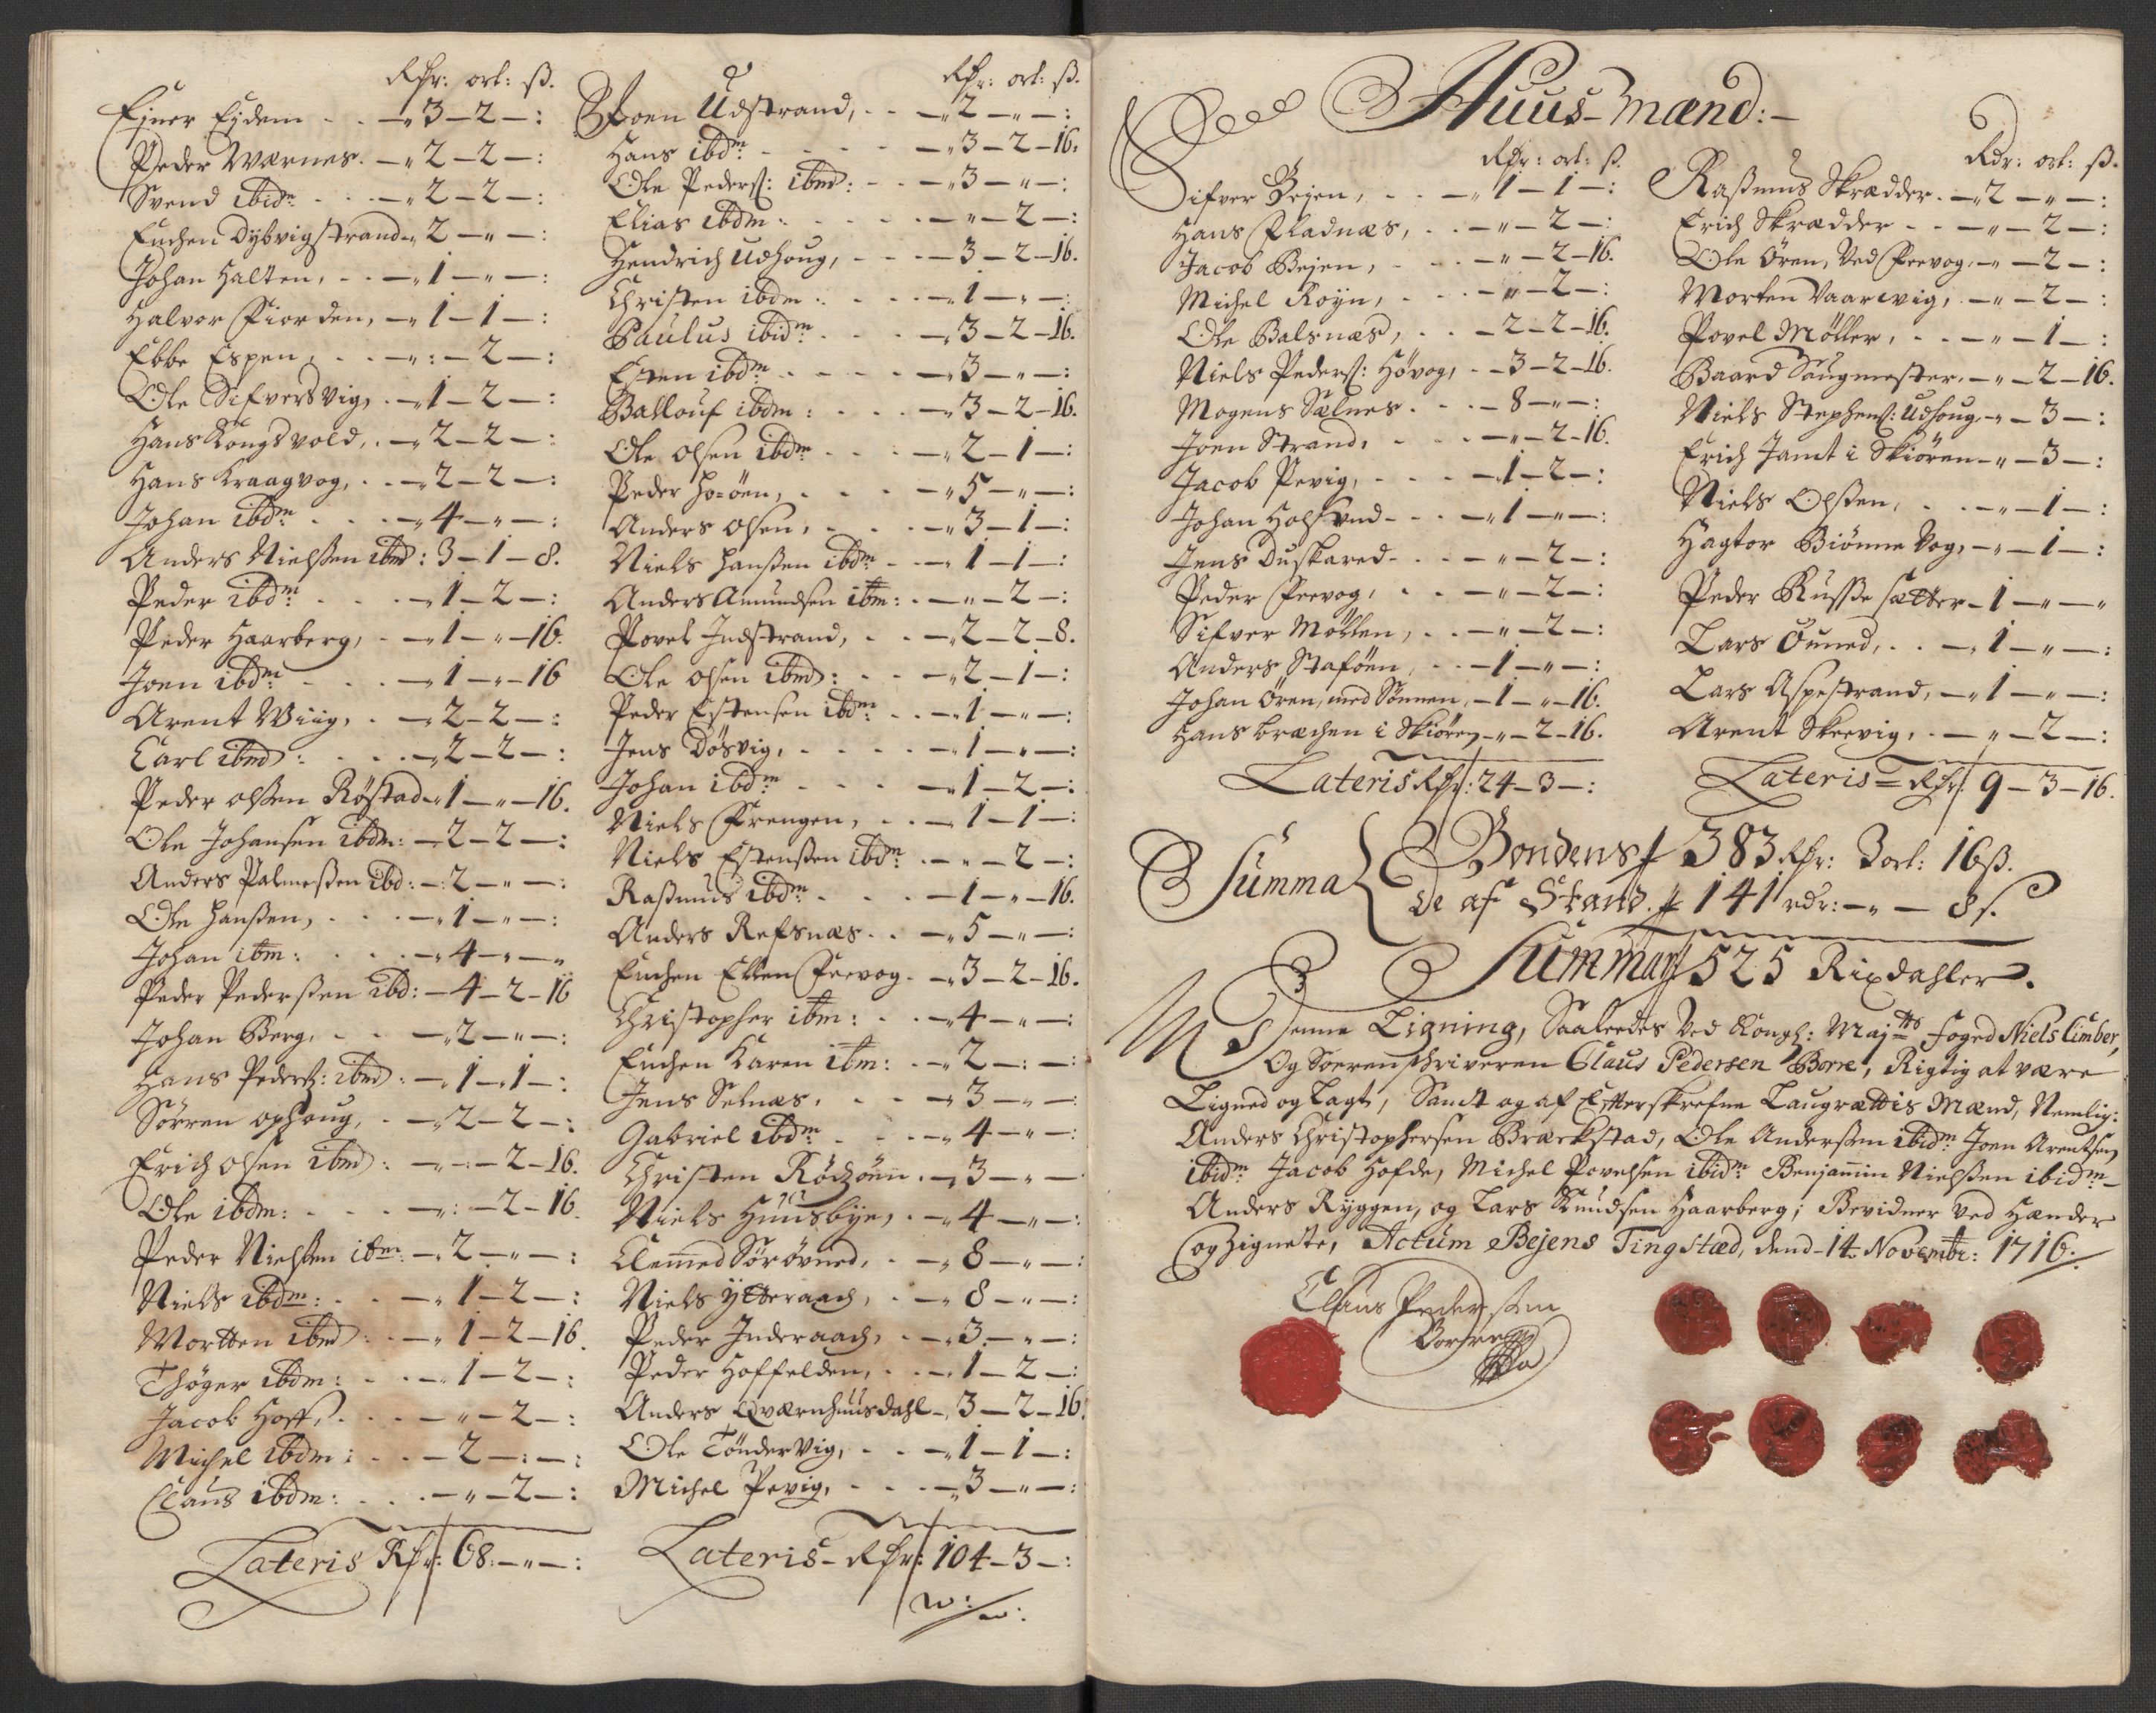 Rdr: ort: ß.
Ejner Ejdem . . — „ 3 — 2 — :
Peder Wærnes . — „ 2 — 2 — :
Svend ibid<sup>m</sup> . . — „ 2 — 2 — :
Enchen Dybvigstrand „ 2 — „ — :
Johan Halten, . . — „ 1 — „ — :
Halvor Fiorden, — „ 1 — 1 — :
Ebbe Espen, . . — „ : — 2 — :
Ole Sifversvig, . — „ 1 — 2 — :
Hans Kongsvold, . — „ 2 — 2 — :
Hans Kraagvog, . . — „ 2 — 2 — :
Johan ibd<sup>m</sup> . . . — „ 4 — „ — :
Anders Nielsßen ibd: 3 — 1 — 8.
Peder ibd<sup>m</sup> . . . — „ 1 — 2 — :
Peder Haarberg, . — „ 1 — „ — 16.
Joen ibd<sup>m</sup> . . . — „ 1 — „ — 16
Arent Wiig, . — „ 2 — 2 — :
Carl ibmd: . . . — „ 2 — 2 — :
Peder Olsßen Röstad — „ 1 — „ — 16.
Ole Johansen ibdm: — „ 2 — 2 — :
Anders Palmeßen ibd: — : 2 — „ — :
Ole Hanßen, . . . — „ 1 — „ — :
Johan ibm: . . . — „ 4 — „ — „
Peder Pederßen ibd: — 4 — 2 — 16
Johan Berg, . . — „ 2 — „ — :
Hans Peders: ibmd: — „ 1 — „ 1 — :
Sörren Ophaug, . — „ 2 — 2 — :
Erich Olsen ibmd: — „ : — 2 — 16.
Ole ibdm: . . . — „ : — 2 — 16.
Peder Nielsßen ibm: — „ 2 — „ — :
Niels ibdm: . . — „ 1 — 2 — :
Mortten ibmd: . — „ 1 — 2 — 16.
Thöger ibdm: . . — „ 1 — 2 — :
Jacob Hoff, . . . — „ — 2 — :
Michel ibdm: . . — 2 — : — :
Claus ibdm: . . . — „ — 2 — :
Lateris Rdr: 68. — „ — :
Rdr: ort: ß.
Joen Udstrand, . . — „ 2 — „ — :
Hans ibd<sup>m</sup> . . . . — „ 3 — 2 — 16.
Ole Peders: ibmd: . . — „ 3 — „ — :
Elias ibdm: . . . . — „ — 2 — :
Hendrich Udhoug, . . . — 3 — 2 — 16.
Christen ibdm: . . . — „ 1 — „ — :
Paulus ibid<sup>m</sup> . . . — „ 3 — 2 — 16.
Esten ibd<sup>m</sup> . . . . — „ 3 — „ — :
Ballouf ibdm: . . . — „ 3 — 2 — 16.
Ole Olsen ibd<sup>m</sup> . . . — „ 2 — 1 — :
Peder Ho=öen, . . . — „ 5 — „ — :
Anders Olsen, . . . — „ 3 — 1 — :
Niels Hanßen ibd<sup>m</sup> . . — „ 1 — 1 — :
Anders Amundsen ibm: . — „ — 2 — :
Povel Indstrand, . . — „ 2 — 2 — 8.
Ole Olsen ibmd: . . — „ 2 — 1 — :
Peder Estensen ibd<sup>m</sup> . . — „ 1 — „ — :
Jens Dösvig, . . . . — „ 1 — „ — :
Johan ibd<sup>m</sup> . . . — „ 1 — 2 — :
Niels Frengen, . . — „ 1 — 1 — :
Niels Estenßen ibd<sup>m</sup> . — „ — 2 — :
Raßmus ibd<sup>m</sup> . . . — 1 — „ — 16.
Anders Refsnæs . . — „ 5 — „ — :
Enchen Ellen Feevog . — „ 3 — 2 — 16.
Christopher ibm: . . — „ 4 — „ — :
Enchen Karen ibm: . — „ 2 — : — :
Jens Selnæs, . . — „ 3 — „ — :
Gabriel ibd<sup>m</sup> . . . — „ 4 — „ — :
Christen Rödzöen . — „ 3 — „ —
Niels Huusbye, . — „ 4 — „ — :
Clemed Sörövned, . — „ 8 — „ — :
Niels Ytteraach, . — „ 8 — „ — :
Peder Inderaach, . — „ 3 — „ — :
Peder Hoffelden, . . — „ 1 — 2 — :
Anders Qværnhuusdahl — „ 3 — 2 — 16.
Ole Töndervig, . . — „ 1 — 1 — :
Michel Pevig, . . . — „ 3 — „ — :
Lateris — Rdr: 104 — 3 — :
Huus-Mænd: —
Rdr: ort: ß.
Sifver Bejen, . . — „ 1 — 1 — :
Hans Fladnæs, . . — „ — 2 — :
Jacob Bejen, . . — „ — 2 — 16.
Michel Royn, . . . — „ — 2 — :
Ole Balsnæs, . . — 2 — 2 — 16.
Niels Peders: Hövog, . — 3 — 2 — 16.
Mogens Sælnes . . . — 8 — „ — :
Joen Strand, . . . — „ — 2 — 16.
Jacob Pevig, . . . — „ 1 — 2 — :
Johan Holssund . . . — „ 1 — „ — :
Jens Duskared . . . — „ — 2 — :
Peder Feevog, . . — „ — 2 — :
Sifver Möllen, . . — „ — 2 — :
Anders Staföen, . . — 1 — „ — :
Johan Ören, med Sönnen, — 1 — „ — 16.
Hans bræchen i Skiören — „ — 2 — 16.
Lateris Rdr: 24 — 3 — :
Rdr: ort: ß.
Raßmus Skrædder . — „ 2 — „ — :
Erich Skrædder . . — „ — 2 — :
Ole Ören, Ved Feevog, — „ — 2 — :
Morten Vaarvig, . — „ — 2 — :
Povel Möller, . . . — „ — 1 — :
Baard Saugmester, — „ — 2 — 16.
Niels Stephens: Udhoug — „ — 3 — :
Erich Jamt i Skiören — „ — 3 — :
Niels Olsßen, . . — „ — 1 — :
Hagtor Biönne Vog, — „ — 1 — :
Peder Russe sætter — 1 — „ — „
Lars Ouned, . . — „ 1 — „ — :
Lars Aspestrand, — „ 1 — „ — :
Arent Skeevig, . — „ — 2 — :
Lateris — Rdr: 9 — 3 — 16.
Summa { Bondens 383 Rdr: 3 ort: 16 ß.
De af Stand. 141 rdr: — „ — 8 s.
Summar 525 Rixdahler.
Denne Ligning, Saaledes Ved Kongl: Maj<sup>tts</sup> foged Niels Cimber,
Og Sorenschriveren Claus Pedersen Borre, Rigtig at være
Ligned og Lagt, Samt og af Effterskrefne Laugrættis Mænd, Nemlig:
Anders Christophersen Brækstad, Ole Anderßen ibid<sup>m</sup> Joen Arentsen
ibid<sup>m</sup> Jacob Hofde, Michel Povelsen ibid<sup>m</sup> Benjamin Nielsßen ibid<sup>m</sup> —
Anders Ryggen, og Lars Knudsen Haarberg; Bevidner Ved Hænder
og Zignete, Actum Bejens Tingstæd, dend 14. Novembr: 1716.
Claus Pederssen
Borre